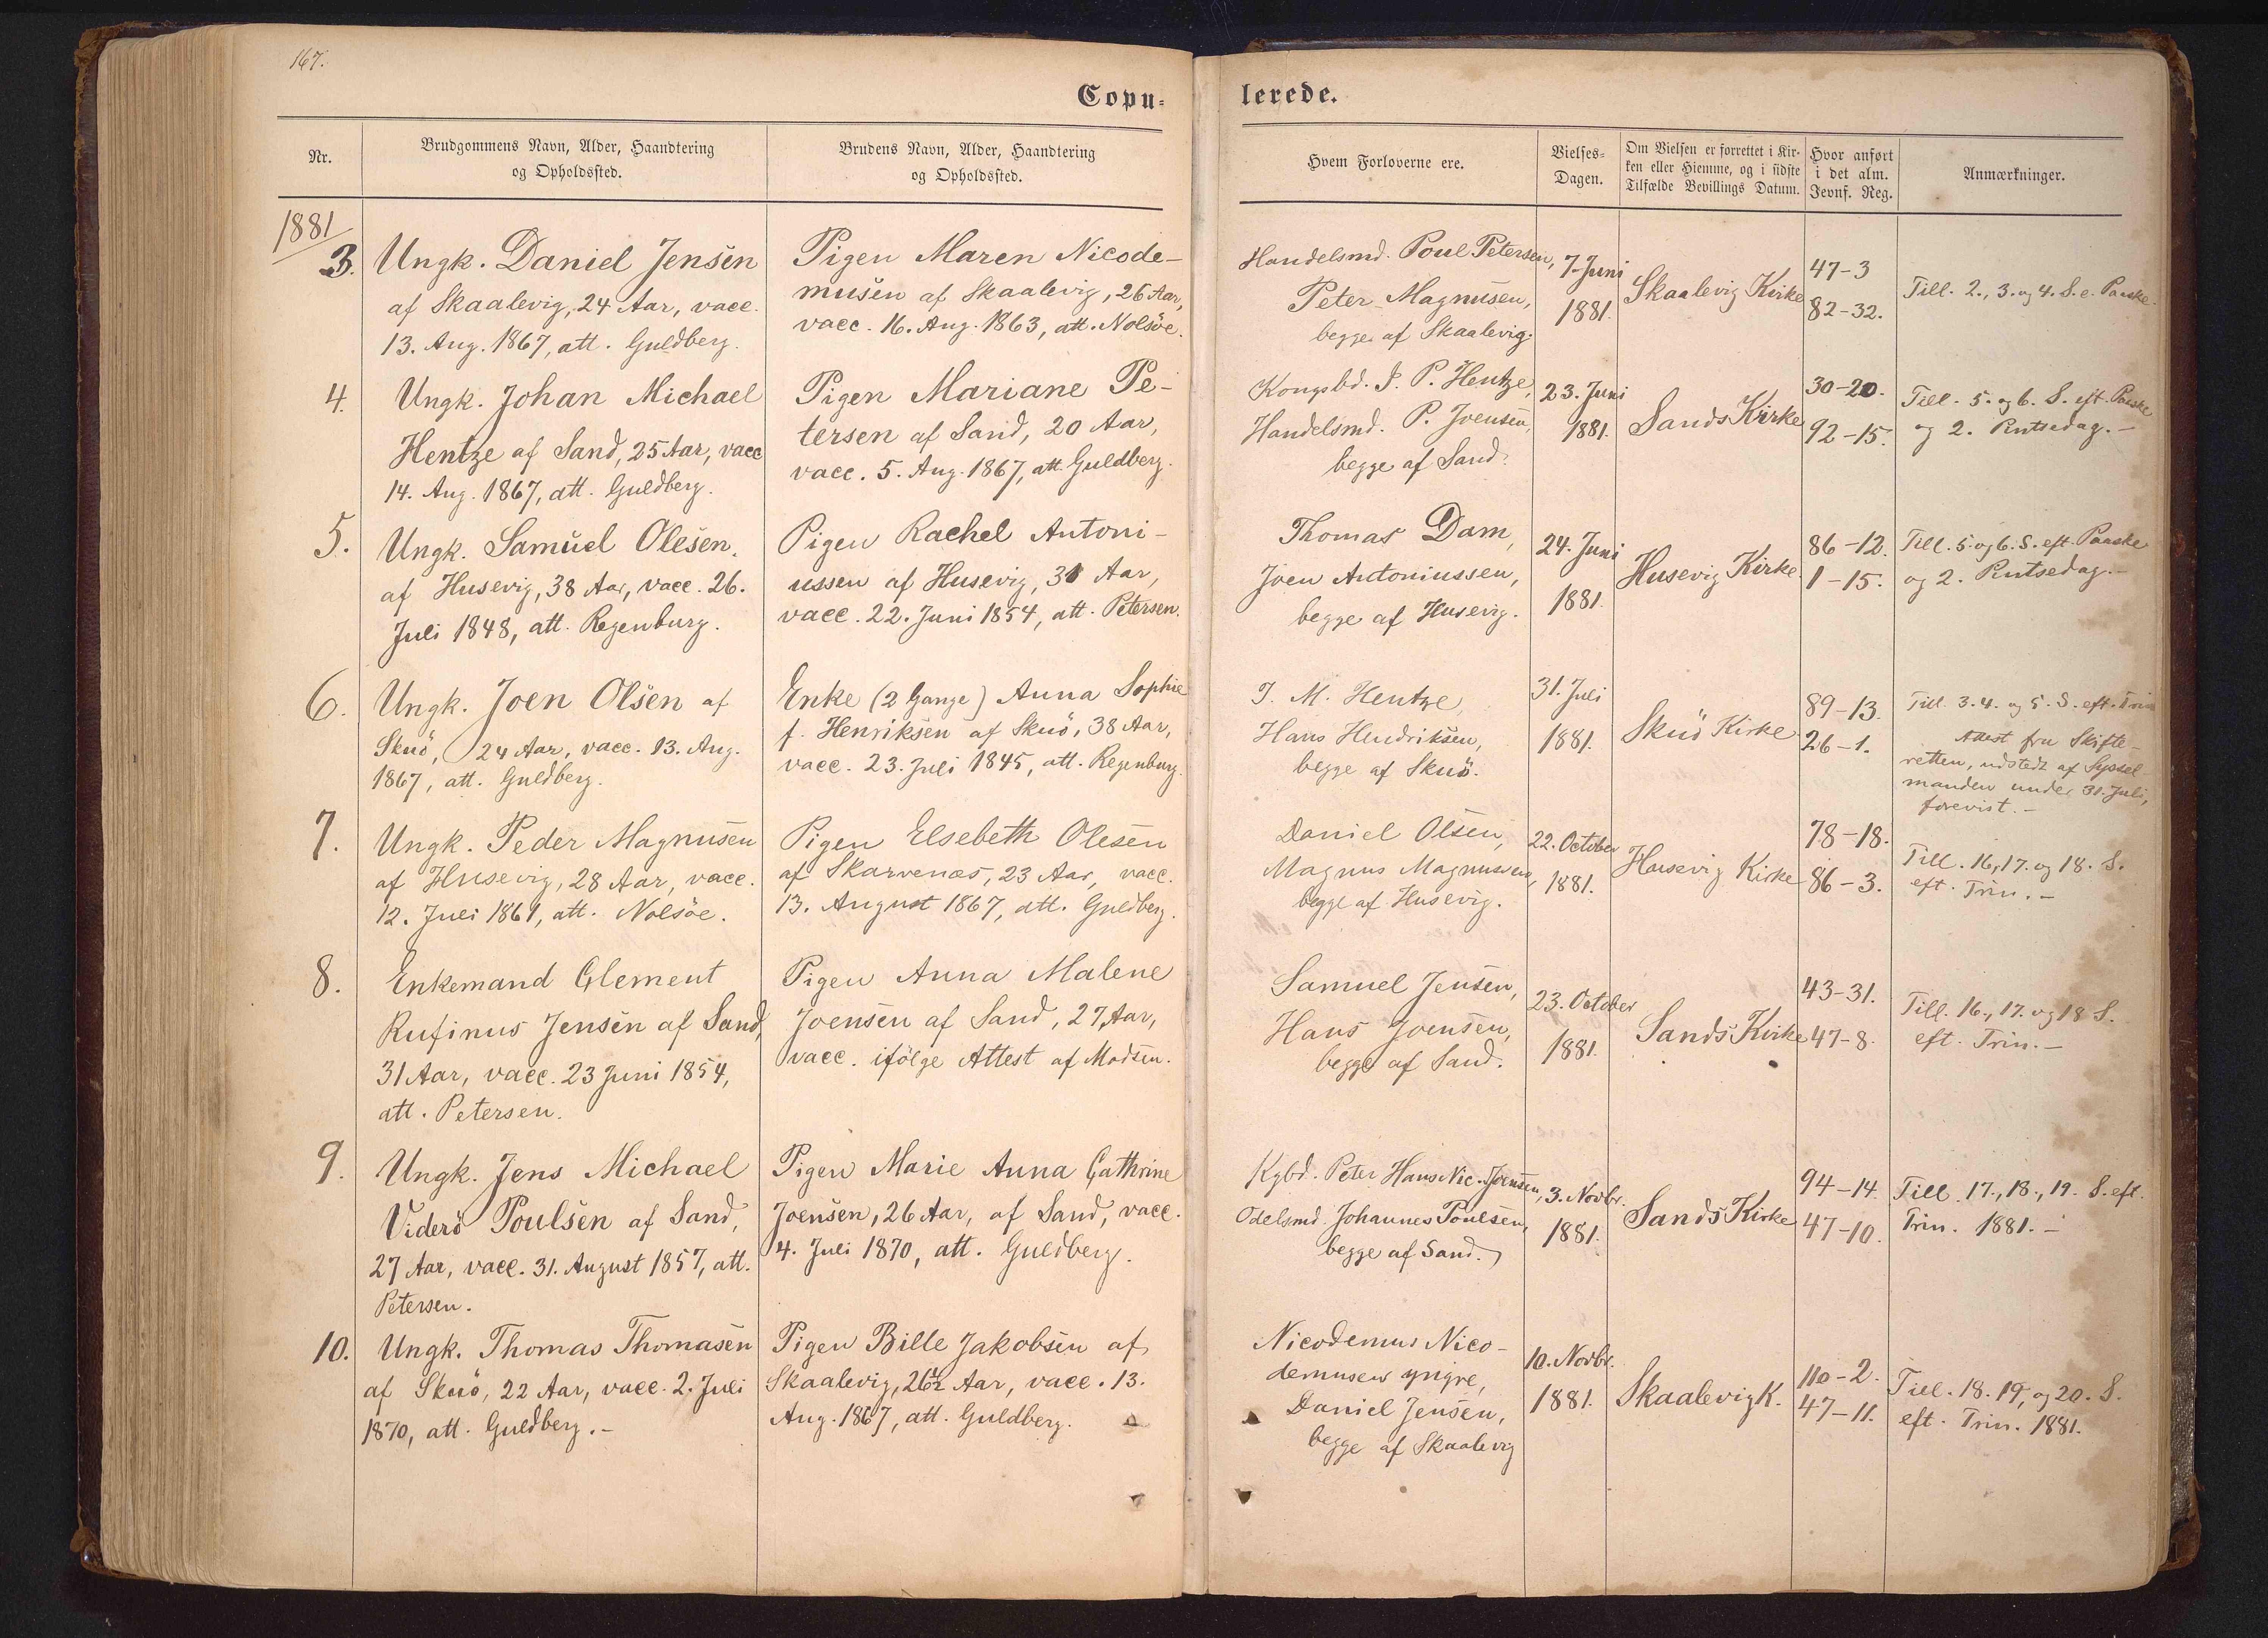 167.
Copu-
lerede.
Nr.
Brudgommens Navn, Alder, Haandtering
og Opholdssted.
Brudens Navn, Alder, Haandtering
og Opholdssted.
Hvem Forloverne ere.
Vielses-
Dagen.
Om Vielsen er forrettet i Kir-
ken eller Hiemme, og i sidste
Tilfælde Bevillings Datum.
Hvor anført
i det alm.
Jevnf. Reg.
Anmærkninger.
1881
3.
Ungk. Daniel Jensen
af Skaalevig, 24 Aar, vacc.
13. Aug. 1867, att. Guldberg.
Pigen Maren Nicode-
musen af Skaalevig, 26 Aar,
vacc. 16. Aug. 1863, att. Nolsöe.
Handelsmd. Poul Petersen,
Peter Magnusen,
begge af Skaalevig.
7. Juni
1881.
Skaalevig Kirke
47-3
82-32.
Till. 2., 3. og 4. S. e. Paaske.
4.
Ungk. Johan Michael
Hentze af Sand, 25 Aar, vacc
14. Aug. 1867, att. Guldberg.
Pigen Mariane Pe-
tersen af Sand, 20 Aar,
vacc. 5. Aug. 1867, att. Guldberg.
Kongsbd. J. P. Hentze,
Handelsmd. P. Joensen,
begge af Sand.
23. Juni
1881.
Sands Kirke
30-20.
92-15.
Till. 5. og 6. S. eft. Paaske
og 2. Pintsedag.-
5.
Ungk. Samuel Olesen.
af Husevig, 38 Aar, vacc. 26.
Juli 1848, att. Regenburg.
Pigen Rachel Antoni-
ussen af Husevig, 31 Aar,
vacc. 22. Juni 1854, att. Petersen.
Thomas Dam,
Joen Antoniussen,
begge af Husevig.
24. Juni
1881.
Husevig Kirke
86-12.
1-15.
Till. 5. og 6. S. eft. Paaske
og 2. Pintsedag.-
6.
Ungk. Joen Olsen af
Skuö, 24 Aar, vacc. 13. Aug.
1867, att. Guldberg.
Enke (2 Gange) Anna Sophie
f. Henriksen af Skuö, 38 Aar,
vacc. 23. Juli 1845, att. Regenburg.
J. M. Hentze,
Hans Hendriksen,
begge af Skuö.
31. Juli
1881.
Skuö Kirke
89-13.
26-1.
Till. 3. 4. og 5. S. eft. Trin
Attest fra Skifte-
retten, udstedt af Syssel-
manden under 31. Juli,
forevist.-
7.
Ungk. Peder Magnusen
af Husevig, 28 Aar, vacc.
12. Juli 1861, att. Nolsöe.
Pigen Elsebeth Olesen
af Skarvenæs, 23 Aar, vacc.
13. August 1867, att. Guldberg.
Daniel Olsen,
Magnus Magnussen,
begge af Husevig.
22. October
1881.
Husevig Kirke
78-18.
86-3.
Till. 16, 17. og 18. S.
eft. Trin.-
8.
Enkemand Clement
Rufinus Jensen af Sand,
31 Aar, vacc. 23 Juni 1854,
att. Petersen.
Pigen Anna Malene
Joensen af Sand, 27 Aar,
vacc. ifölge Attest af Madsen.
Samuel Jensen,
Hans Joensen,
begge af Sand.
23. October
1881.
Sands Kirke
43-31.
47-8.
Till. 16., 17. og 18 S.
eft. Trin.-
9.
Ungk. Jens Michael
Viderö Poulsen af Sand,
27 Aar, vacc. 31. August 1857, att.
Petersen.
Pigen Marie Anna Cathrine
Joensen, 26 Aar, af Sand, vacc.
4. Juli 1870, att. Guldberg.
Kgbd. Peter Hans Nic. Joensen,
Odelsmd. Johannes Poulsen,
begge af Sand.
3. Novbr.
1881.
Sands Kirke
94-14.
47-10.
Till. 17., 18., 19. S. eft.
Trin. 1881.-
10.
Ungk. Thomas Thomasen
af Skuö, 22 Aar, vacc. 2. Juli
1870, att. Guldberg.-
Pigen Bille Jakobsen af
Skaalevig, 26½ Aar, vacc. 13.
Aug. 1867, att. Guldberg.
Nicodemus Nico-
demusen yngre,
Daniel Jensen,
begge af Skaalevig
10. Novbr.
1881.
Skaalevig K.
110-2.
47-11.
Till. 18. 19, og 20. S.
eft. Trin. 1881.